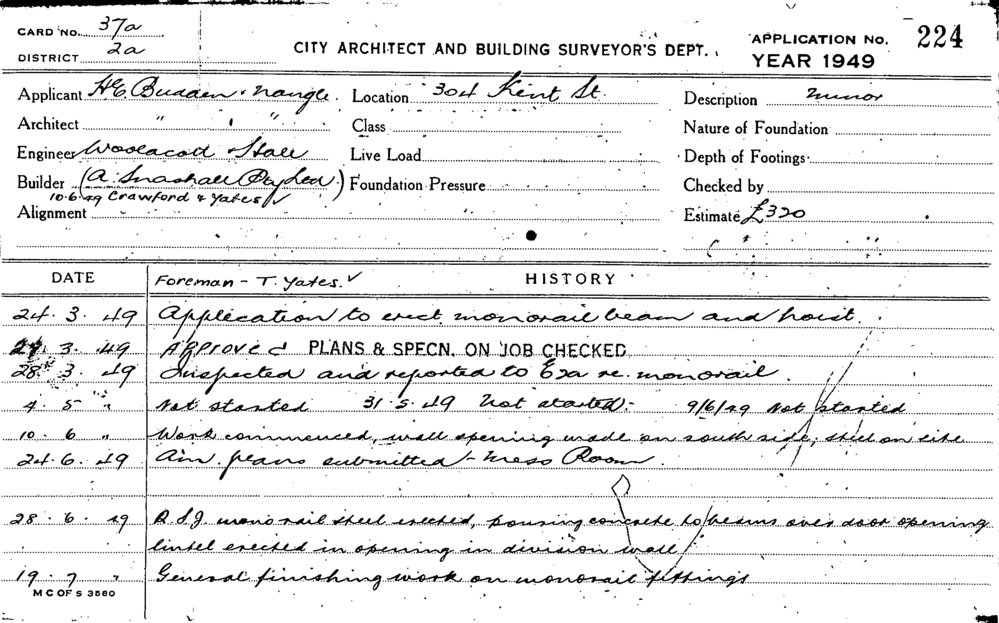 CARD NO. 37a
DISTRICT 2a
CITY ARCHITECT AND BUILDING SURVEYOR'S DEPT.
APPLICATION No. 224
YEAR 1949
Applicant H.E. Budden & Nangle Location 304 Kent St. Description Minor
Architect " " " Class Nature of Foundation
Engineer Woolacott Hale Live Load Depth of Footings
Builder (A. Snashall Pty Ltd) Foundation Pressure Checked by
10.6.49 Crawford & Yates ✓
Alignment Estimate £320
DATE Foreman - T. Yates. ✓ HISTORY
24.3.49 Application to erect monorail beam and hoist.
3.49 Approved PLANS & SPECN. ON JOB CHECKED
28.3.49 Inspected and reported to Exa re. monorail.
4.5 " Not started 31.5.49 Not started. 9/6/49 Not started
10.6 " Work commenced, wall opening made on south side, steel on site
24.6.49 Am. plans submitted - Mess Room.
28.6.49 R.S.J. mono rail steel erected, pouring concrete to beams over door opening
lintel erected in opening in division wall
19.7 " General finishing work on monorail fittings
M C OF S 3560